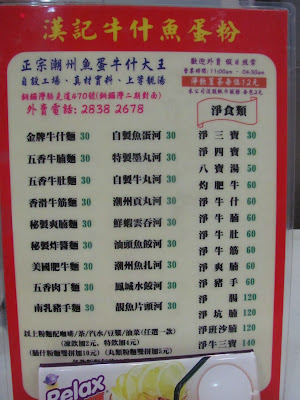 漢記牛什魚蛋粉
正宗潮州魚蛋牛什大王
自設工場、真材實料、上等靚湯
銅鑼灣駱克道470號(銅鑼灣二期對面)
外賣電話: 2838 2678
歡迎外賣 假日照常
營業時間: 11:00am - 04:30am
淨飲
每位12元
淨食類
金牌牛什麵 30
五香牛腩麵 30
五香牛肚麵 30
香滑牛筋麵 30
秘製爽腩麵 30
秘製炸醬麵 30
美國肥牛麵 30
五香肉丁麵 30
南乳豬手麵 30
自製魚蛋河 30
特製墨丸河 30
自製牛丸河 30
潮州貢丸河 30
鮮蝦雲吞河 30
汕頭魚餃河 30
潮州魚扎河 30
鳳城水餃河 30
靚魚片頭河 30
淨三寶 30
淨四寶 30
八寶湯 50
灼肥牛 60
淨牛什 60
淨牛腩 60
淨牛肚 60
淨牛筋 60
淨爽腩 60
淨豬手 60
淨 腸 120
淨坑腩 120
淨班沙腩 120
淨牛三寶 140
以上粉麵配咖啡/茶/汽水/豆漿/油菜(任選一款)
(凍飲加2元, 特飲加4元)
(腩什粉麵雙拼加10元)(丸類粉麵雙拼加5元)
Relax